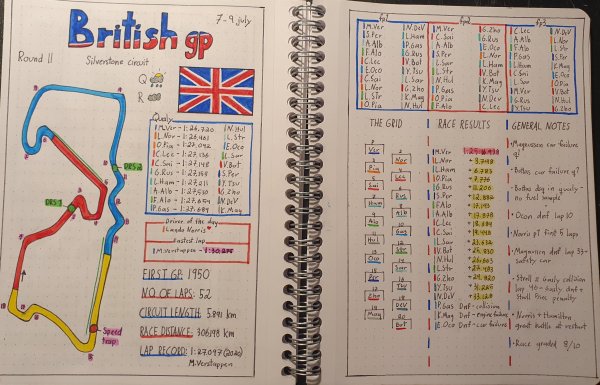 7-9. july
British gp
Round 11
Silverstone circuit
Q
R
DRS 2
DRS 1
Speed trap
Qualy
M.Ver - 1:26.720
L.Nor - 1:26.961
O.Pia - 1:27.092
C.Lec - 1:27.136
C.Sai - 1:27.148
G.Rus - 1:27.155
L.Ham - 1:27.211
A.Alb - 1:27.530
F.Alo - 1:27.659
P.Gas - 1:27.689
N.Hul
L.Str
E.Oco
L.Sar
V.Bot
S.Per
Y.Tsu
G.Zho
N.DeV
K.Mag
Driver of the day
Lando Norris
Fastest lap
M.Ver - 1:30.275
FIRST GP: 1950
NO. OF LAPS: 52
CIRCUIT LENGTH: 5.891 km
RACE DISTANCE: 306.198 km
LAP RECORD: 1:27.097 (2020)
M.Verstappen
Fp1
M.Ver
S.Per
A.Alb
F.Alo
C.Lec
E.Oco
L.Nor
L.Str
O.Pia
N.DeV
L.Ham
P.Gas
G.Rus
V.Bot
Y.Tsu
L.Sar
K.Mag
N.Hul
Fp2
M.Ver
C.Sai
A.Alb
S.Per
L.Sar
P.Gas
F.Alo
G.Zho
G.Rus
E.Oco
L.Nor
L.Ham
V.Bot
K.Mag
Y.Tsu
N.DeV
C.Lec
Fp3
C.Lec
A.Alb
F.Alo
P.Gas
G.Rus
L.Sar
M.Ver
O.Pia
N.DeV
L.Nor
L.Str
S.Per
K.Mag
E.Oco
C.Sai
N.Hul
Y.Tsu
G.Zho
THE GRID
1
Ver
2
Nor
3
Pia
4
Lec
5
Sai
6
Rus
7
Ham
8
Alb
9
Alo
10
Gas
11
Hul
12
Str
13
Oco
14
Sar
15
Per
16
Tsu
17
Zho
18
DeV
19
Mag
20
Bot
RACE RESULTS
M.Ver 1:25:16.938
L.Nor +3.798
L.Ham +6.783
O.Pia +7.776
G.Rus +11.206
S.Per +12.882
F.Alo +17.193
A.Alb +17.878
C.Lec +18.689
C.Sai +19.448
L.Sar +23.632
V.Bot +25.830
N.Hul +26.663
L.Str +27.483
G.Zho +29.820
Y.Tsu +31.225
N.DeV +33.128
P.Gas Dnf - collision
K.Mag Dnf - engine failure
E.Oco Dnf - car failure
GENERAL NOTES
• Magnussen car failure q1
• Bottas car failure q1
• Bottas dsq in qualy - no fuel sample
• Ocon dnf lap 10
• Norris p1 first 5 laps
• Magnussen dnf lap 33 - safety car
• Stroll & Gasly collision lap 46 - Gasly dnf & Stroll 5sec penalty
• Norris + Hamilton great battle at restart
• Race graded 8/10